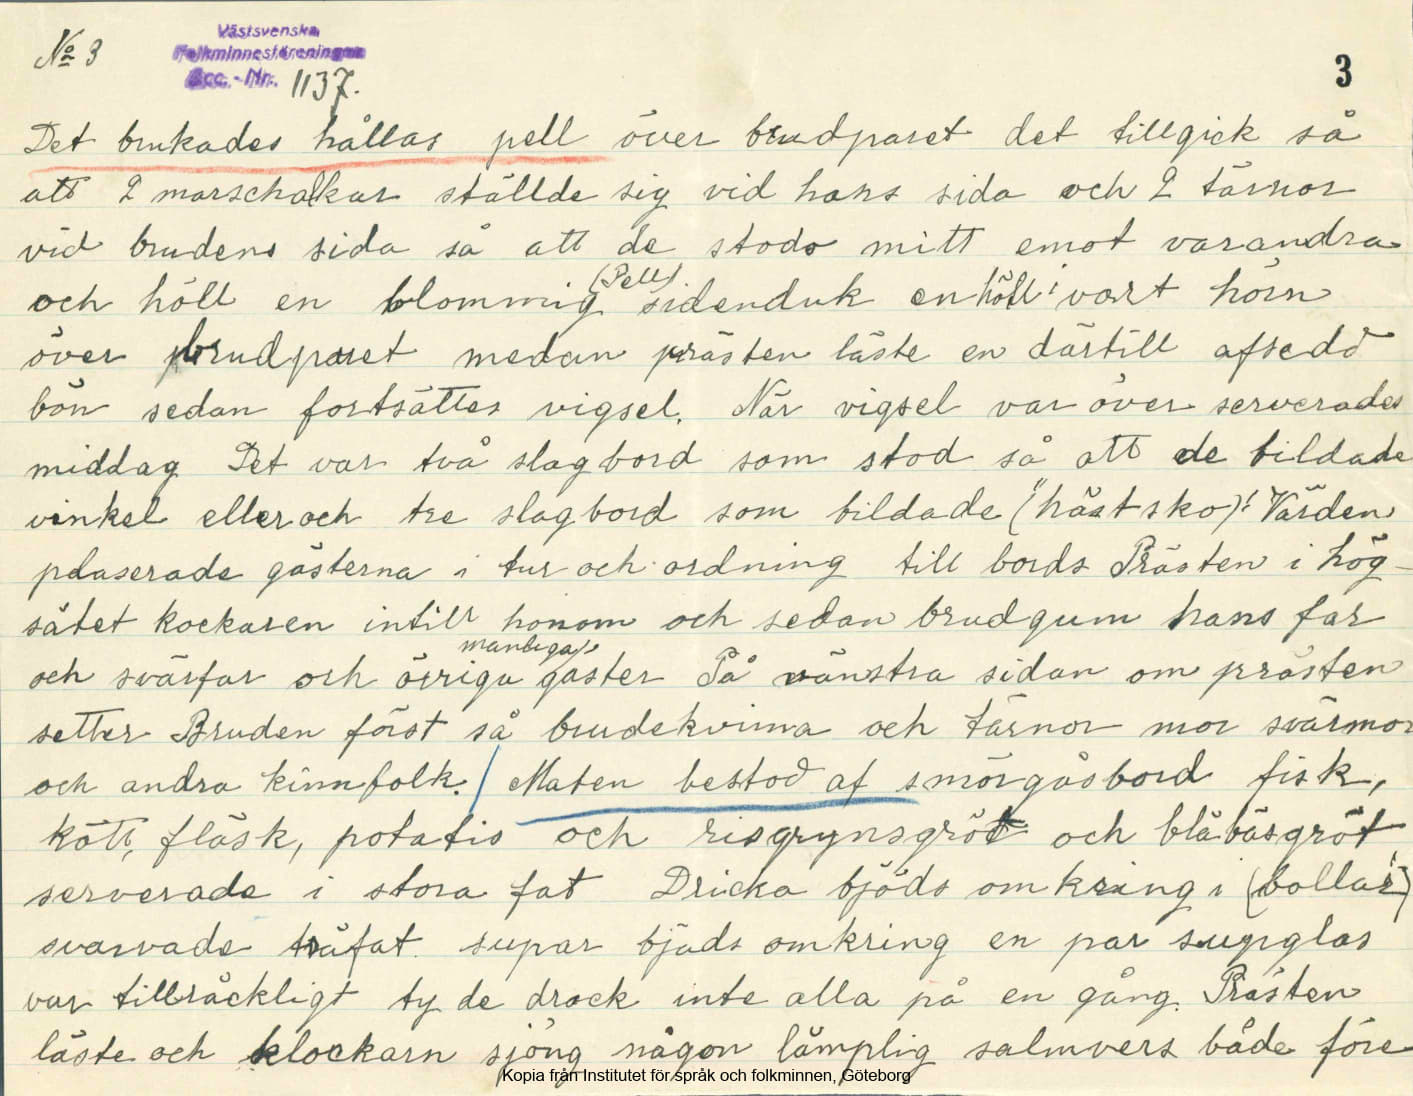 No 3
Västsvenska
Folkminnesföreningen
Acc.-Nr. 1137.
3
Det brukades hållas pell över brudparet det tillgick så
att 2 marschalkar ställde sig vid hans sida och 2 tärnor
vid brudens sida så att de stodo mitt emot varandra
och höll en blommig (Pell) sidenduk en höll i vart hörn
över brudparet medan prästen läste en därtill afsedd
bön sedan fortsättes vigsel. När vigsel var över serverades
middag Det var två slagbord som stod så att de bildade
vinkel eller och tre slagbord som bildade ("hästsko)" Värden
plaserade gästerna i tur och ordning till bords Prästen i hög-
sätet kockaren intill honom och sedan brudgum hans far
och svärfar och övriga manliga gäster På vänstra sidan om prästen
setter Bruden först så brudekvinna och tärnor mor svärmor
och andra kinnfolk. Maten bestod af smörgåsbord fisk,
kött, fläsk, potatis och risgrynsgröt och blåbäsgröt
serverade i stora fat Dricka bjöds omkring i (bollar")
svarvade träfat. supar bjöds omkring en par supglas
var tillräckligt ty de drack inte alla på en gång. Prästen
läste och klockarn sjöng någon lämplig salmvers både före
Kopia från Institutet för språk och folkminnen, Göteborg